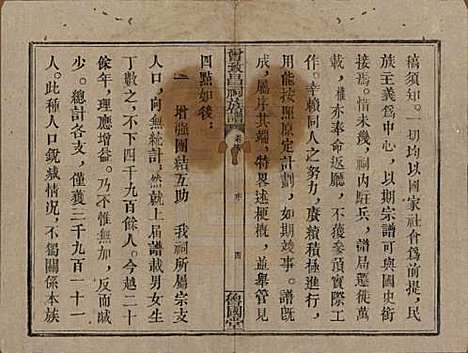 稿須知。一切均以國家社會爲前提，民
族主義爲中心，以期宗譜可與國史銜
接爲志。惜未幾，祠內駐兵，譜局遷徙萬
載，權亦奉命返廳，不復參預實際工
作。幸賴同人之努力，賡續積極進行，
用能按照原定計劃，如期竣事。譜既
成，屬序其端，特畧述梗概，並舉管見
四點如後：
曾致昌祠族譜
卷首
序
四
魯國堂
一 增強團結互助 我祠所屬宗支
人口，向無統計，然以上屆譜載男女生
丁數之，不下四千九百餘人。今越二十
餘年，理應增益。乃不惟無加，反而減
少。總計各支，僅獲三千九百一十一
人。此種人口銳減情況，不獨關係本族